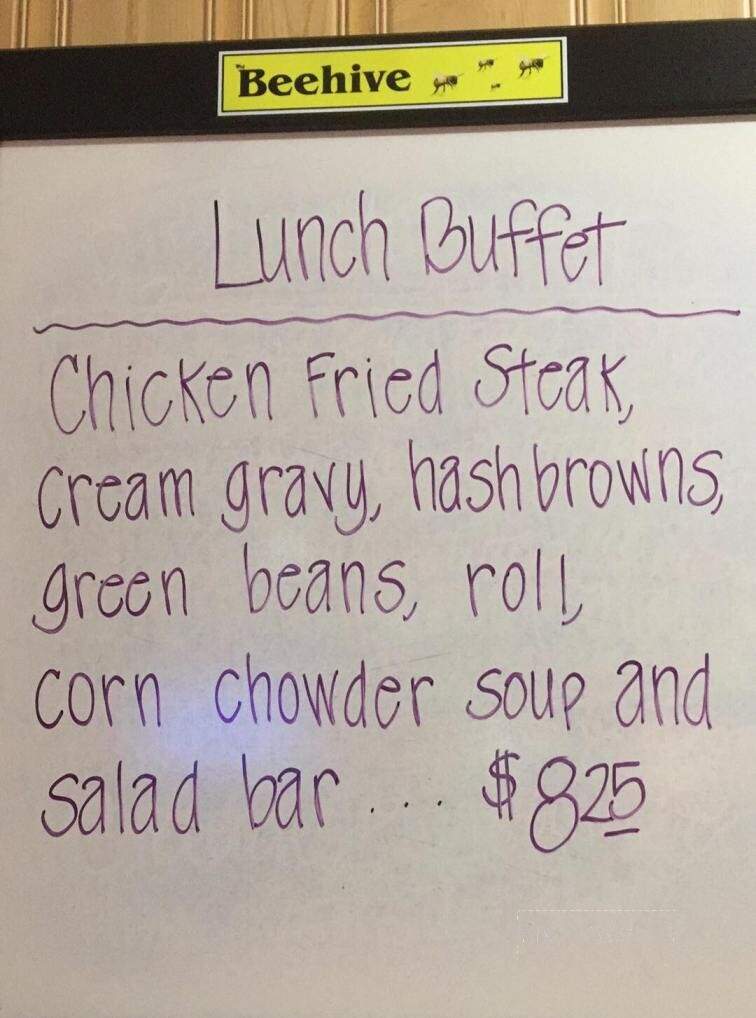 The Beehive
Lunch Buffet
Chicken Fried Steak,
cream gravy, hashbrowns,
green beans, roll,
corn chowder soup and
salad bar .... $825